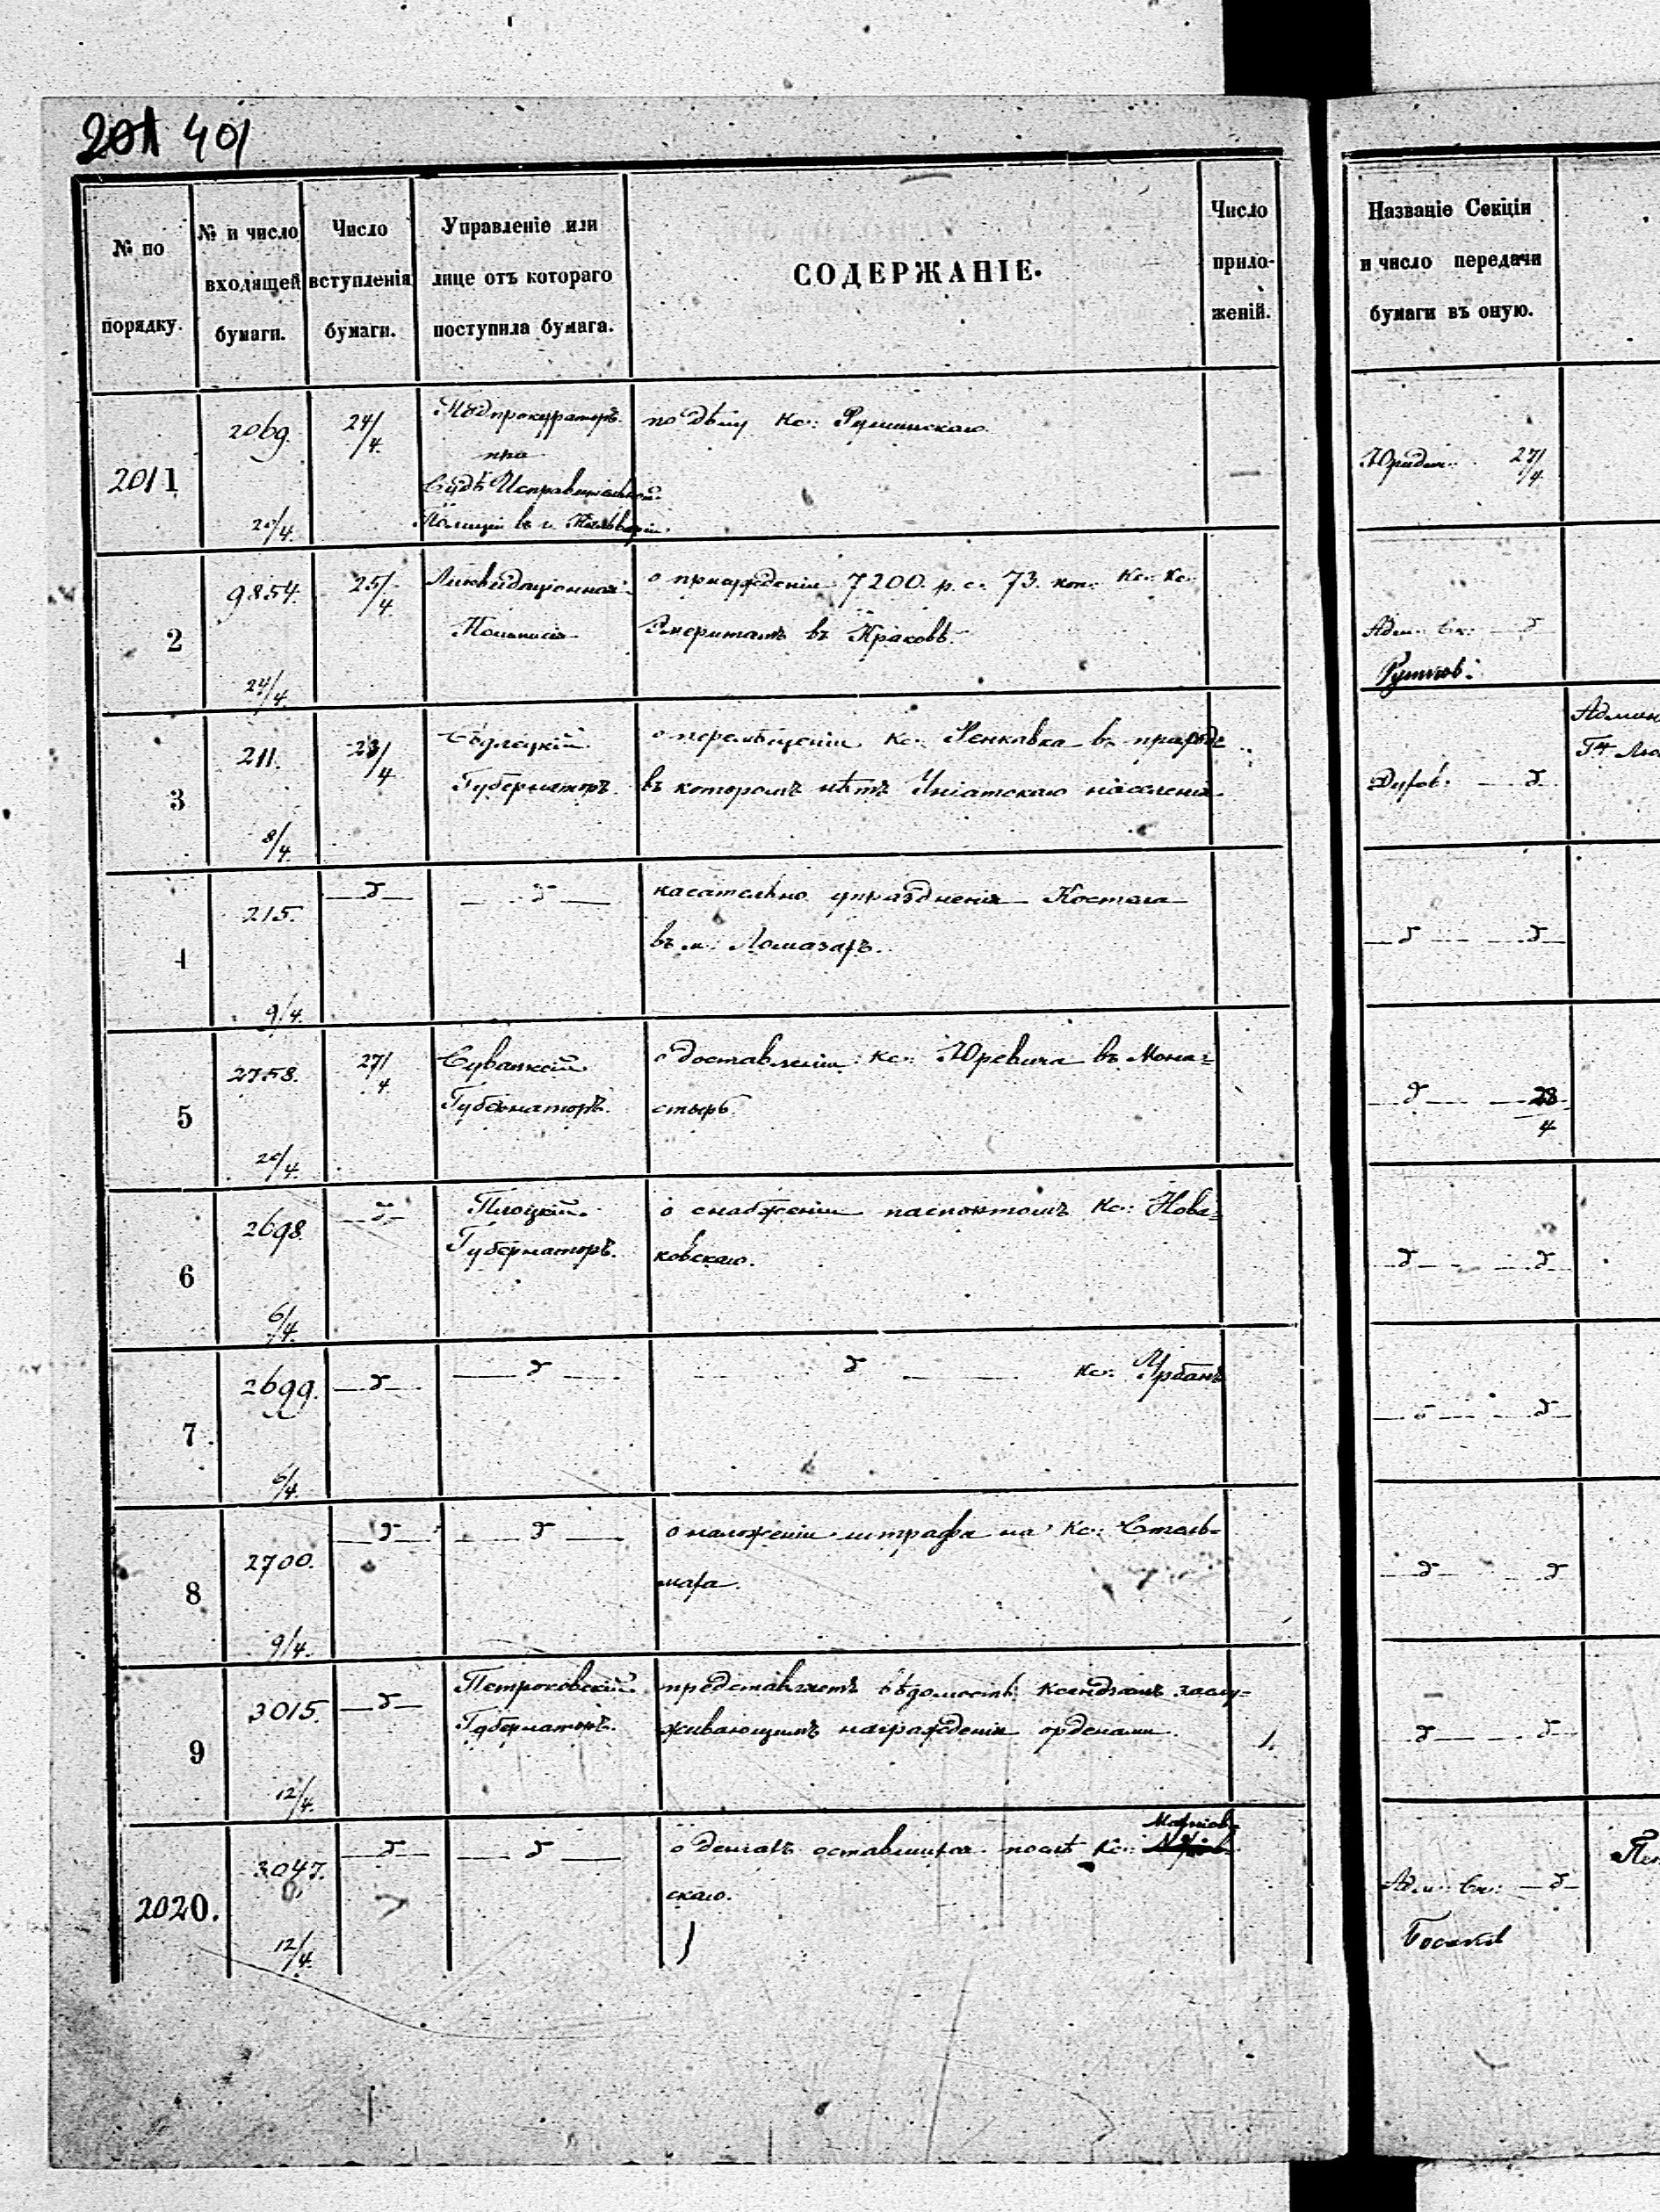 201 401
№ по порядку.
№ и число входящей бумаги.
Число вступленія бумаги.
Управленіе или лице отъ котораго поступила бумага.
СОДЕРЖАНІЕ.
Число прило-женій.
Названіе Секціи и число передачи бумаги въ оную.
2011
2069.
20/4.
24/4.
Подпрокураторъ
при
Судѣ Исправительной
Полиціи въ г. Кальваріи.
по дѣлу Кс:
—
Юридич: 27/4
2
9854.
24/4
25/4
Ликвидаціонная
Коммисія
о присужденіи 7200. р. с. 73. коп. Кс. Кс.
Эмеритамъ въ Краковѣ.
Адм: Ск: — д
3
211.
8/4
23/4
Сѣдлецкій
Губернаторъ.
о перемѣщеніи Кс: въ приходъ
въ которомъ нѣтъ Уніатскаго населенія.
Духов: — д.
4
215.
9/4.
— д —
— д —
касательно упраздненія Костела
въ м: Ломазахъ.
— д — — д —
5
2758.
20/4.
27/4.
Сувалкскій
Губернаторъ.
о доставленіи Кс: Юревича въ Мона=
стырь.
— д — — 28/4
6
2698.
6/4.
— д —
Плоцкій
Губернаторъ.
о снабженіи паспортомъ Кс: Нова=
ковскаго.
— д — — д
7.
2699.
6/4.
— д —
— д —
— д — Кс: Урбанъ
— д — — д —
8
2700.
9/4.
— д —
— д —
о наложеніи штрафа на Кс: Столь=
— д — — д
9
3015.
12/4.
— д —
Петроковскій
Губернаторъ.
представляетъ вѣдомость ксендзамъ заслу=
живающимъ награжденія орденами.
1.
— д — — д —
2020.
3047.
12/4.
— д —
— д —
о деньгахъ оставшихся послѣ Кс:
скаго.
Адм: Ск: — д —